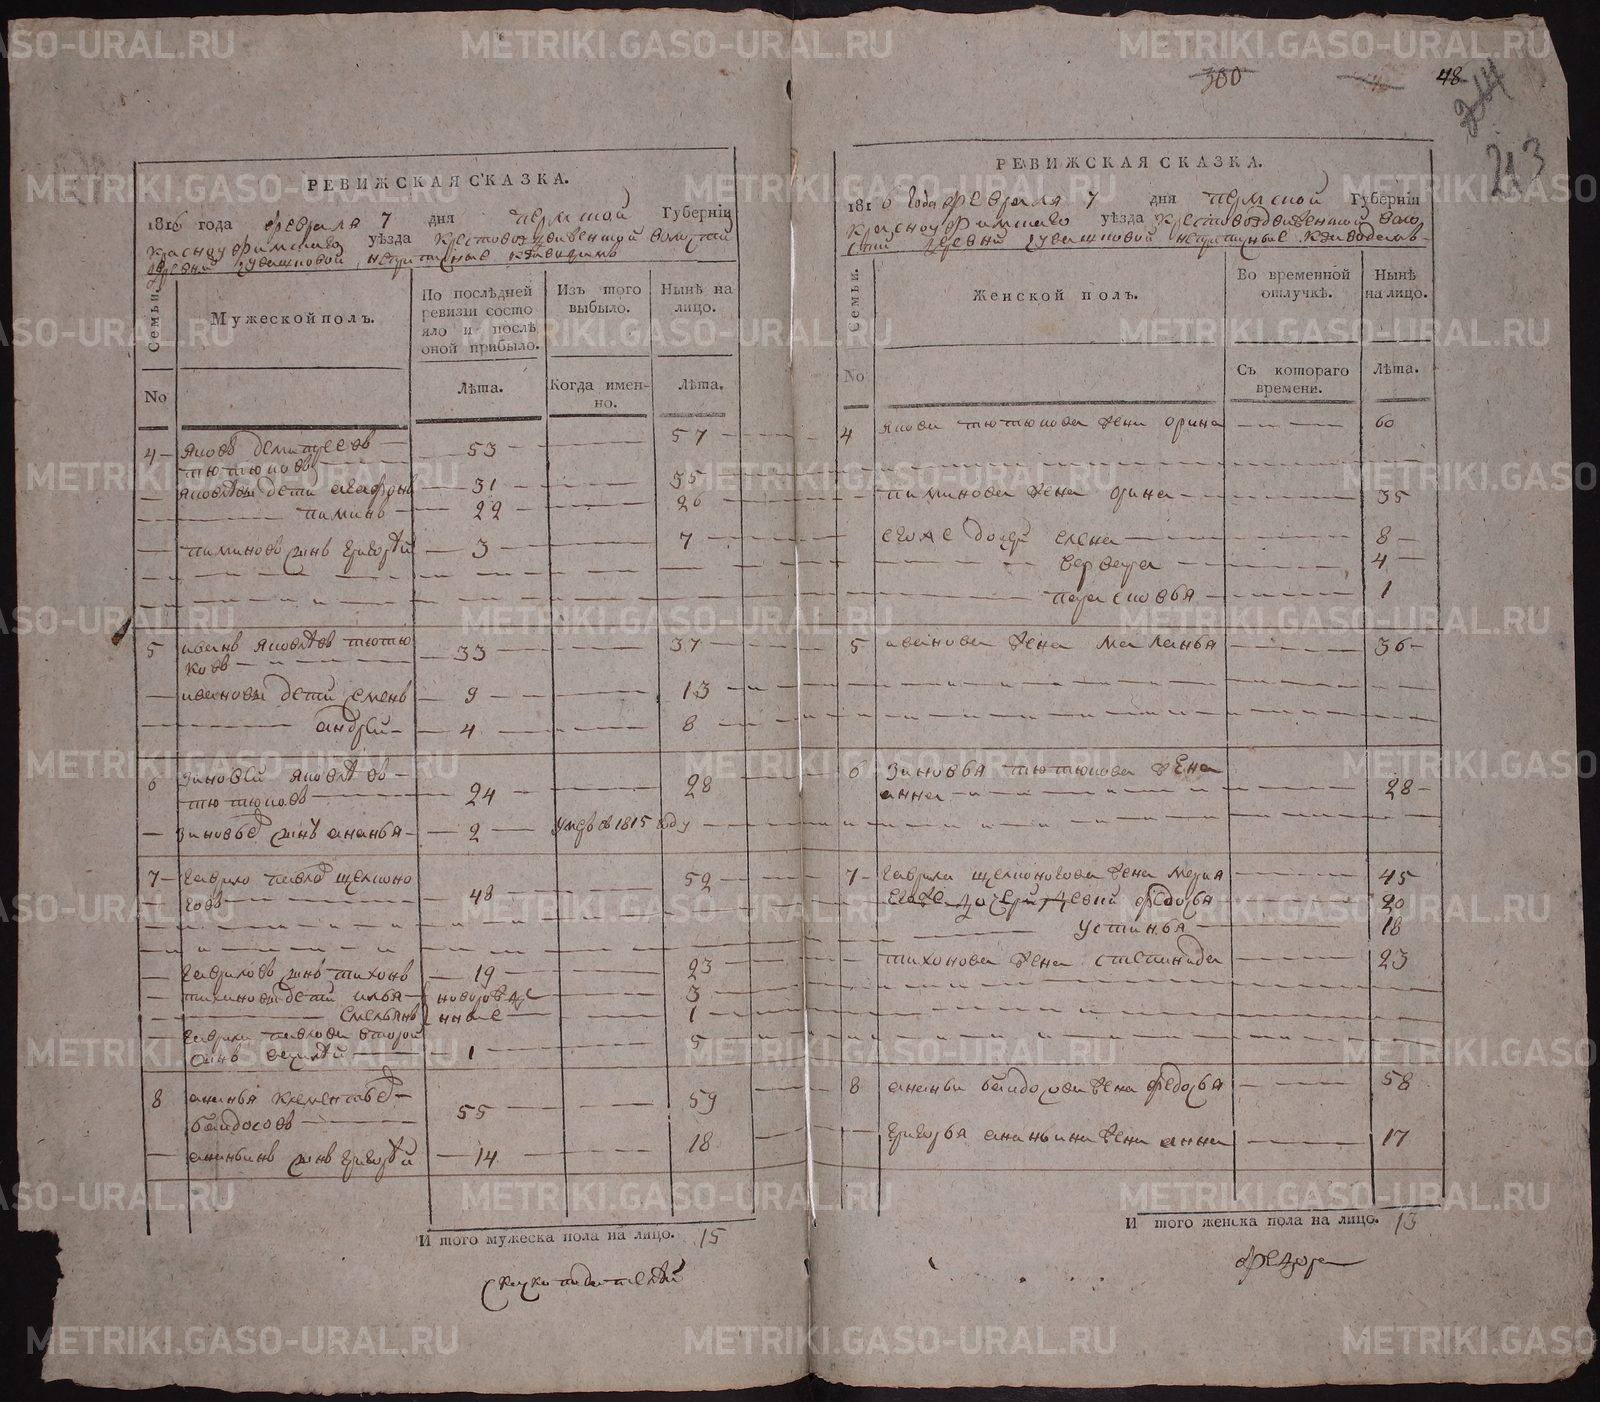 METRIKI.GASO-URAL.RU
300
48
214
213
РЕВИЖСКАЯ СКАЗКА.
1816 года февраля 7 дня пермской Губернїи
красноуфимскаго уѣзда крестовоздвиженской волости
деревни чувашковой
Семьи.
No
Мужеской полъ.
По послѣдней ревизїи состояло и послѣ оной прибыло.
Лѣта.
Изъ того выбыло.
Когда именно.
Нынѣ на лицо.
Лѣта.
4 яковъ дементьевъ тютюковъ 53 57
яковлевы дети агафонъ 31 35
пименъ 22 26
пименовъ сынъ григорей 3 7
5 иванъ яковлевъ тютюковъ 33 37
ивановы дети семенъ 9 13
андрей 4 8
6 зиновей яковлевъ тютюковъ 24 28
зиновьевъ сынъ ананья 2 умре въ 1815 году
7 гаврило павловъ щелконоговъ 48 52
гавриловъ сынъ тихонъ 19 23
тихоновы дети илья новорожденные 3
емельянъ 1
гаврила павлова второй сынъ 1 5
8 ананья клементьевъ байдосовъ 55 59
ананьинъ сынъ григорей 14 18
И того мужеска пола на лицо. 15
РЕВИЖСКАЯ СКАЗКА.
1816 года февраля 7 дня пермской Губернїи
красноуфимскаго уѣзда крестовоздвиженской воло
сти деревни чувашковой
Семьи.
No
Женской полъ.
Во временной отлучкѣ.
Съ котораго времени.
Нынѣ на лицо.
Лѣта.
4 якова тютюкова жена орина 60
пиминова жена орина 35
его же дочери елена 8
варвара 4
парасковья 1
5 иванова жена маланья 36
6 зиновья тютюкова жена анна 28
7 гаврила щелконогова жена марья 45
его же дочери девки федосья 20
устинья 18
тихонова жена степанида 23
8 ананьи байдосова жена федосья 58
григорья ананьина жена анна 17
И того женска пола на лицо. 13